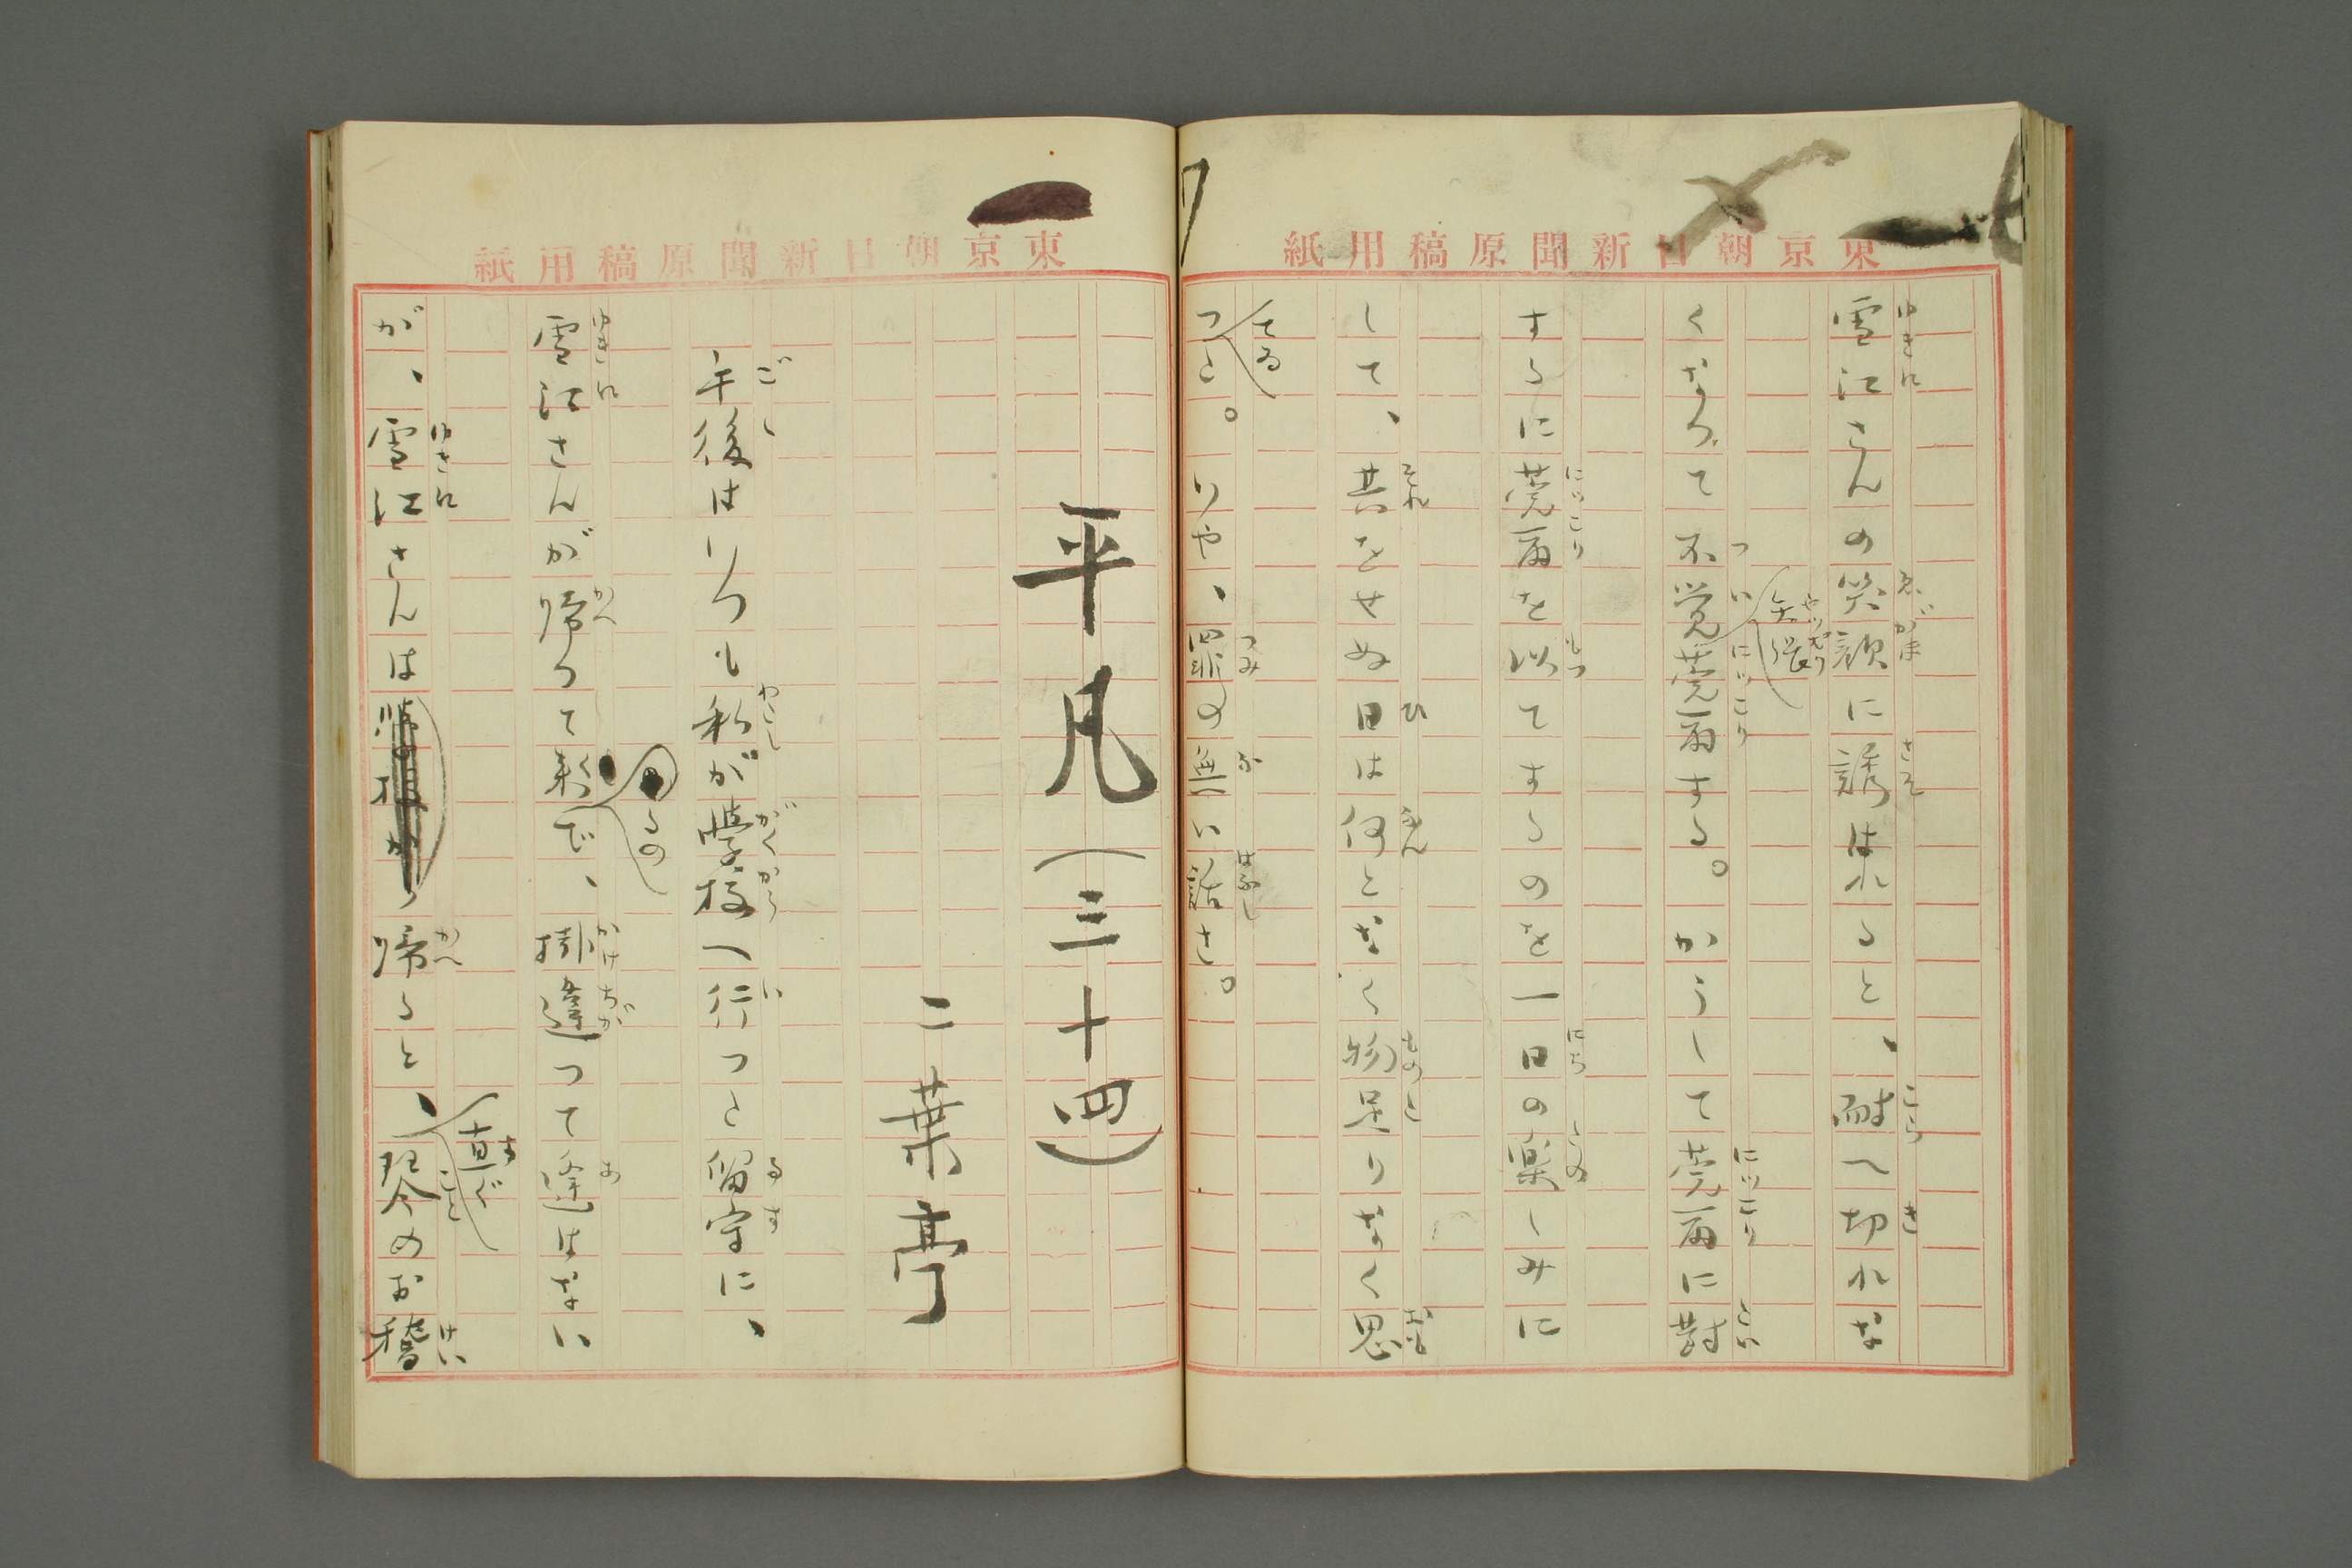 東京朝日新聞原稿用紙
雪江さんの笑顔に誘はれると、耐へ切れな
くなつて不覚矢張莞爾する。かうして莞爾に対
するに莞爾を以てするのを一日の楽しみに
して、其をせぬ日は何となく物足りなく思
つてゐると。いや、罪の無い話さ。
東京朝日新聞原稿用紙
平凡(三十四)
二葉亭
午後はいつも私が学校へ行つた留守に、
雪江さんが帰つて来るので、掛違つて逢はない
が、雪江さんは帰ると、直ぐ琴のお稽